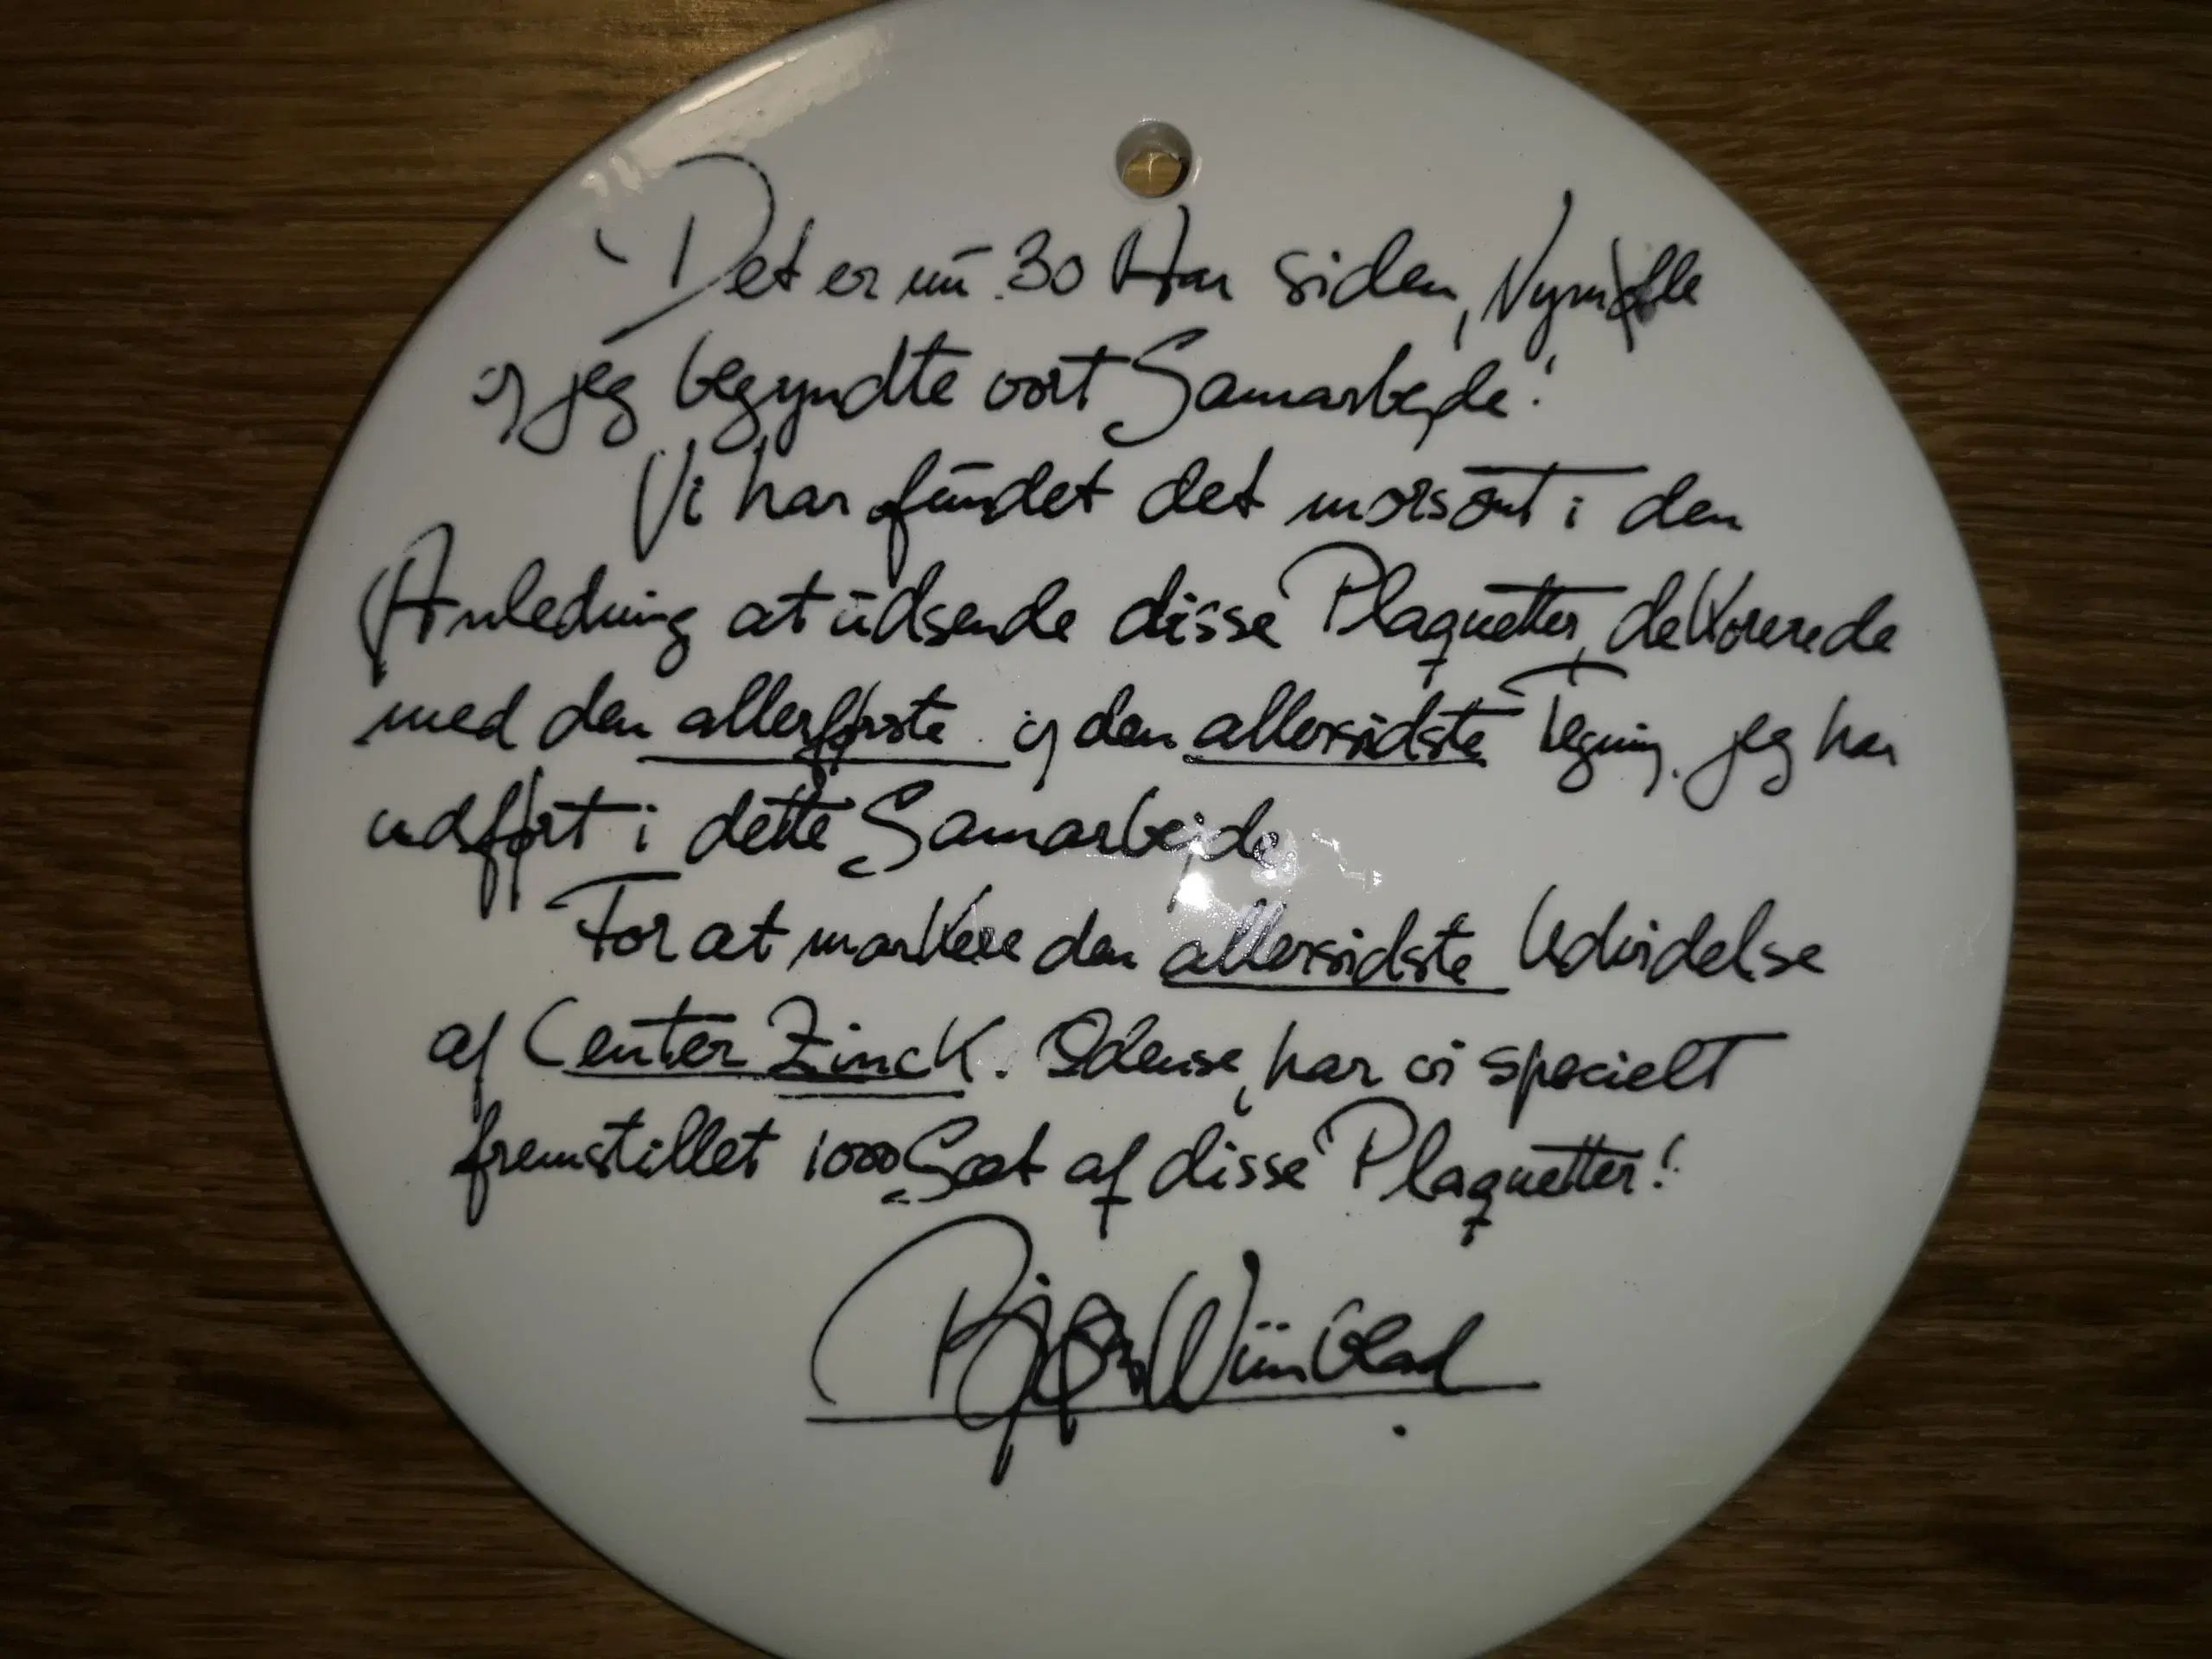 Det er nu 30 Aar siden, Nymølle
og jeg begyndte vort Samarbejde!
Vi har fundet det morsomt i den
Anledning at udsende disse Plaquetter, dekorerede
med den allerførste og den allersidste Tegning, jeg har
udført i dette Samarbejde
For at markere den allersidste Udvidelse
af Center Zinck. Odense, har vi specielt
fremstillet 1000 Sæt af disse Plaquetter!
Bjørn Wiinblad